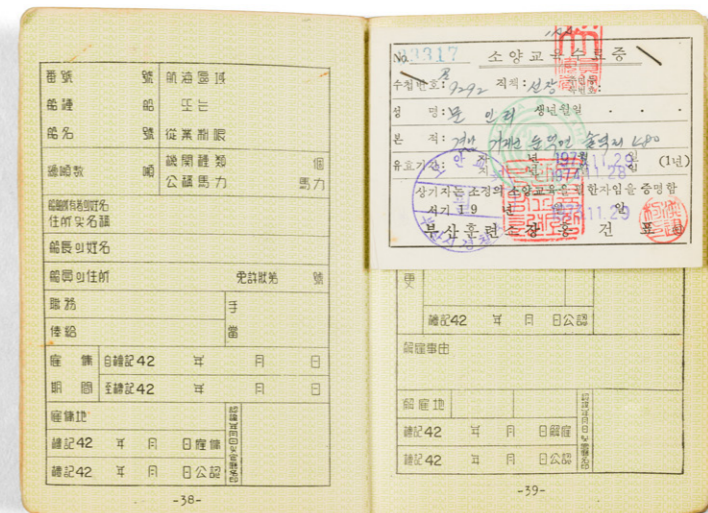 番號 號 航海區域
船種 船 또는
船名 號 從業制限
總噸數 噸 機關種類 個
公稱馬力 馬力
船舶所有者의姓名
住所 및 名稱
船長의姓名
船員의住所 免許狀第 號
職務 手
俸給 當
雇傭 自檀記42 年 月 日
期間 至檀記42 年 月 日
雇傭地
檀記42 年 月 日雇傭
檀記42 年 月 日公認
-38-
No. 33317 소양교육수료증
수첩번호: 9292 직책: 선장
성 명: 문 생년월일 . . .
본 적: 경남 거제군 둔덕면 술역리 480
유효기간: 자 년 1976.11.29 일 (1년)
지 1977.11.28
상기자는 소정의 소양교육을 필한자임을 증명함
서기 19 년 11.29 일
부산훈련소장
更
檀記42 年 月 日公認
解雇事由
解雇地
檀記42 年 月 日解雇
檀記42 年 月 日公認
-39-